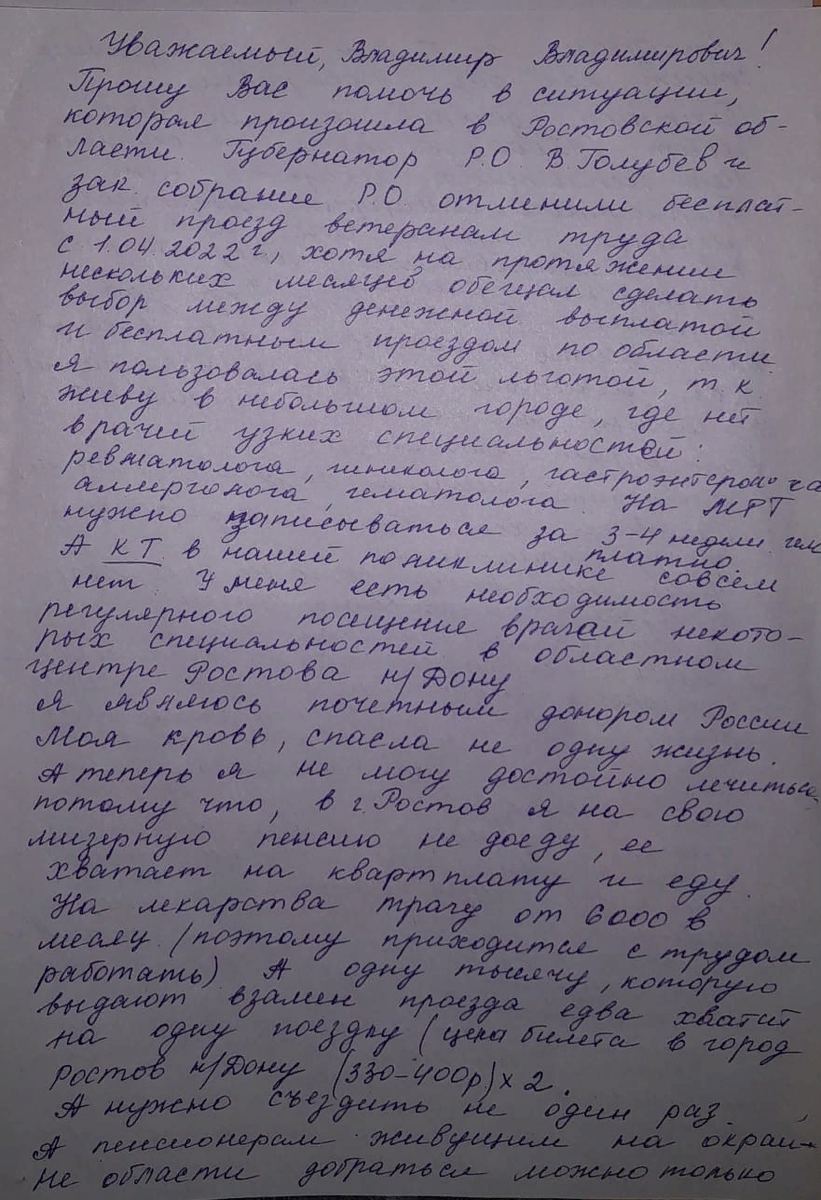 Уважаемый, Владимир Владимирович!
Прошу Вас помочь в ситуации,
которая произошла в Ростовской об-
ласти. Губернатор Р.О. В.Голубев и
зак. собрание Р.О. отменили бесплат-
ный проезд ветеранам труда
с 1.04.2022 г, хотя на протяжении
нескольких месяцев обещал сделать
выбор между денежной выплатой
и бесплатным проездом по области
Я пользовалась этой льготой, т.к.
живу в небольшом городе, где нет
врачей узких специальностей:
ревматолога, гинколога,
аллерголога, гематолога. На МРТ
нужно записываться за 3-4 недели
платно.
А КТ в нашей поликлинике совсем
нет. У меня есть необходимость
регулярного посещение врачай некото-
рых специальностей в областном
центре Ростова н/Дону
Я являюсь почетным донором России
Моя кровь, спасла не одну жизнь.
А теперь я не могу достойно лечиться
потому что, в г.Ростов я на свою
мизерную пенсию не доеду, ее
хватает на квартплату и еду.
На лекарства трачу от 6000 в
месяц (поэтому приходится с трудом
работать) А одну тысячу, которую
выдают взамен проезда едва хватит
на одну поездку (цена билета в город
Ростов н/Дону (330-400р)х 2.
А нужно съездить не один раз.
А пенсионерам живущим на окраи-
не области добраться можно только